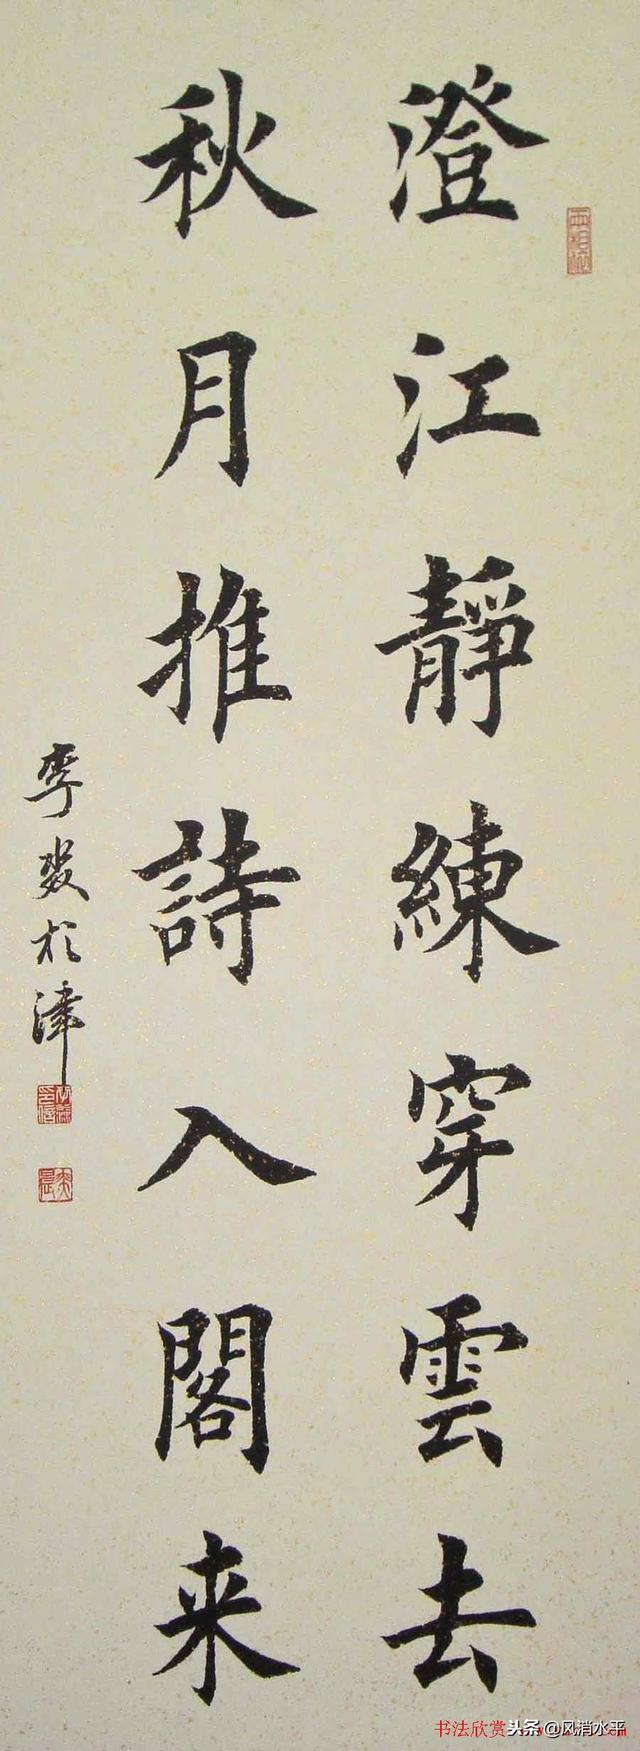 澄江靜練穿雲去
秋月推詩入閣来
於津
书法欣赏
头条 @风消水平